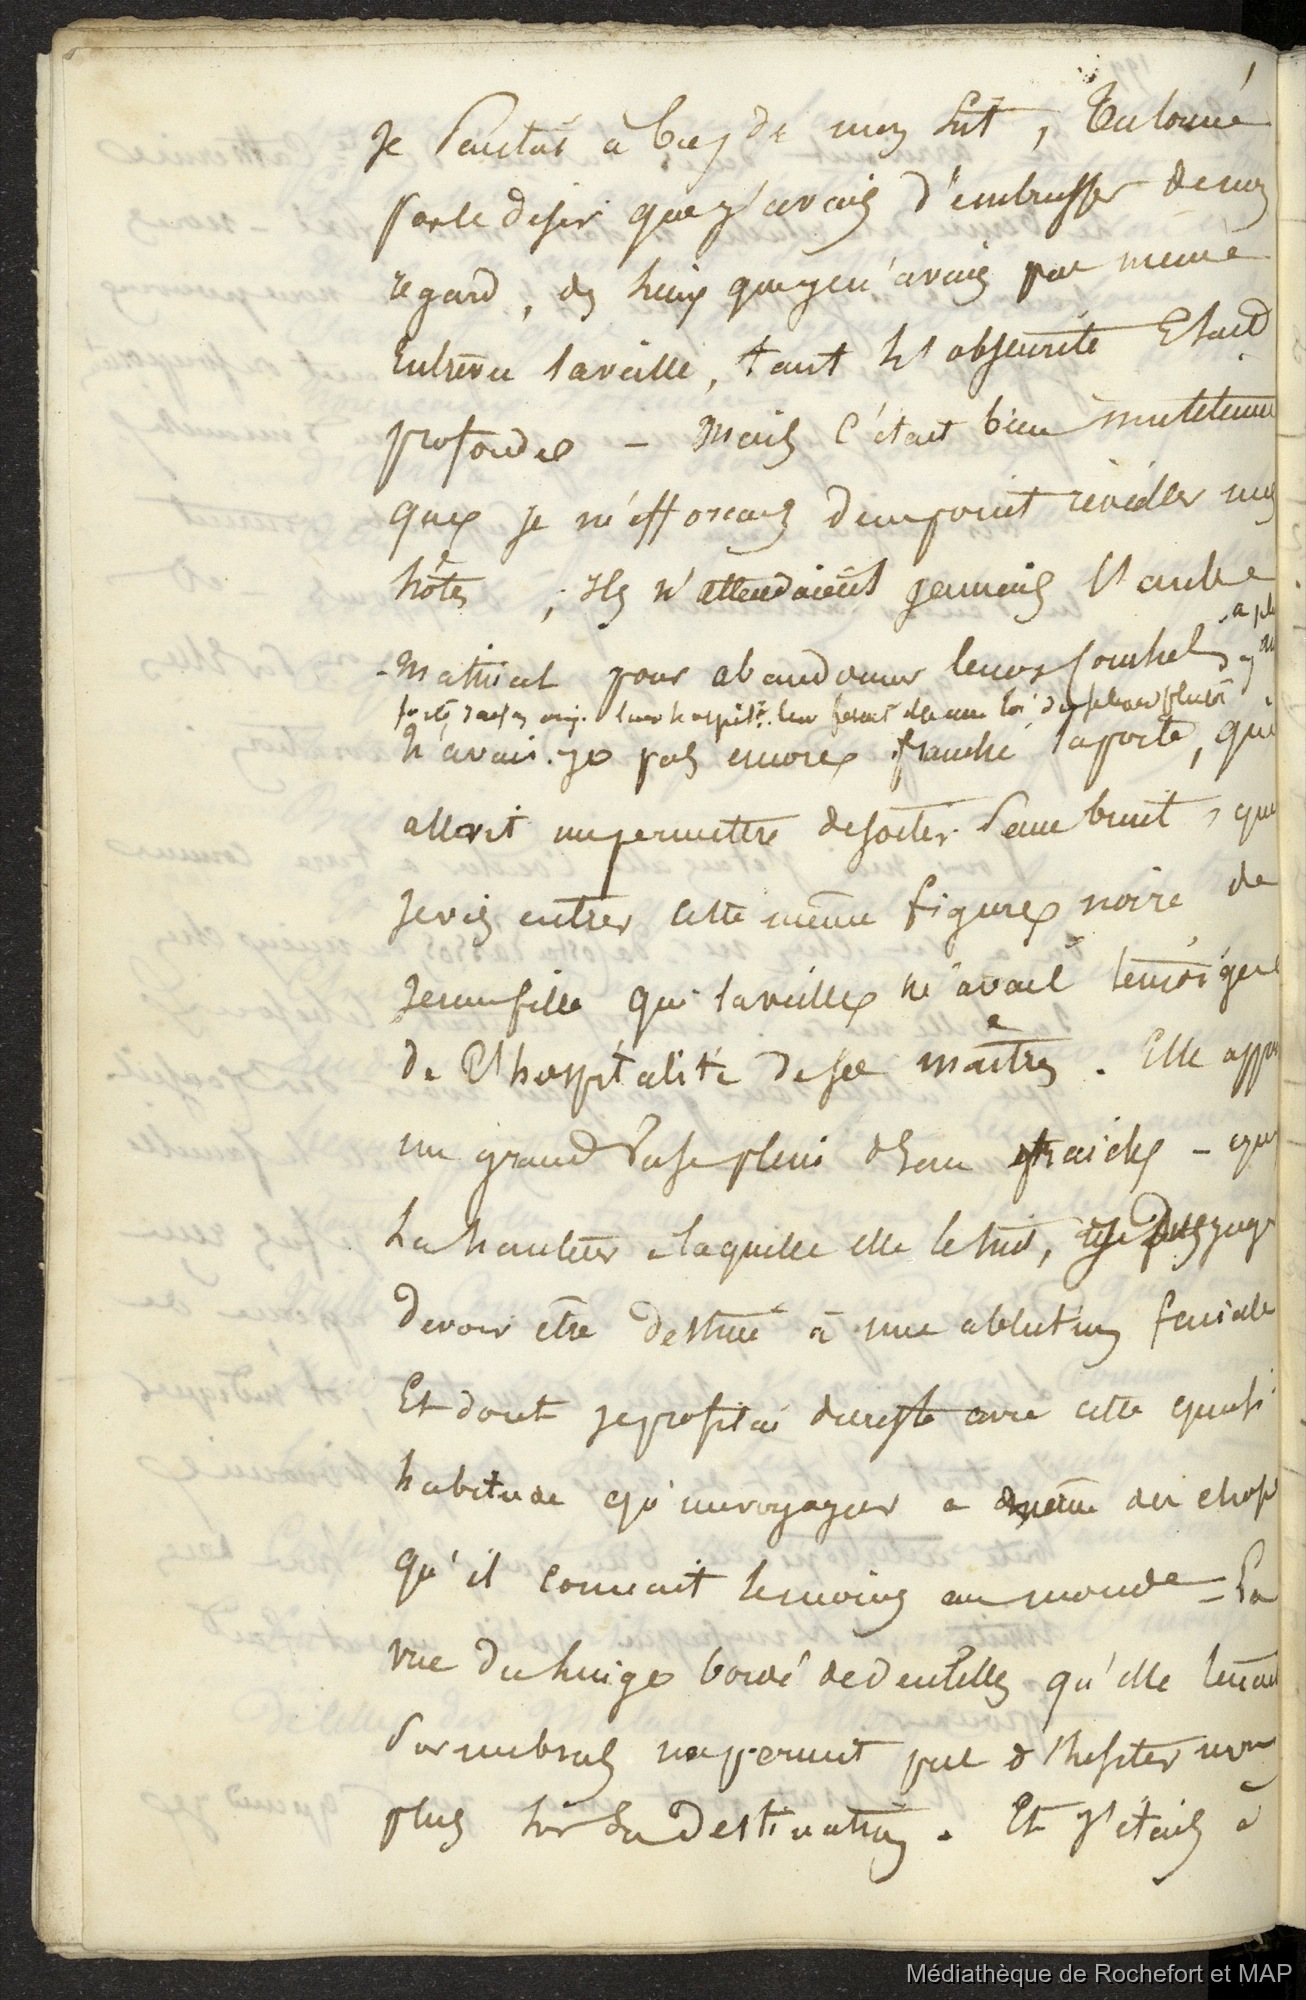 Je sautai à bas de mon lit, talonné
par le desir que j'avais d'embrasser de mon
regard, des lieux que je n'avais pas meme
entrevu la veille, tant l'obscurité etait
profonde - Mais c'était bien inutilement
que je m'efforcais de ne point réveiller mes
hôtes ; ils n'attendaient jamais l'aube
matinal pour abandonner leurs couches, a pl
leur hospité. leur fesait
n'avais-je pas encore franchi la porte, qui
allait me permettre de sortir sans bruit, que
je vis entrer cette même figure noire de
jeune fille qui la veille m'avait temoigné
de l'hospitalité de ses maitres. Elle appo
un grand vase plein d'eau fraiche - que
la hauteur à laquelle elle le tint, je jugé
devoir être destiné à une ablution faciale
Et dont je profitai du reste avec cette quasi
habitude qu'un voyageur a même des chose
qu'il connait le moins au monde - La
vue du linge bordé de dentelles qu'elle tenait
sur un bras ne permit pas d'hesiter non
plus sur sa destination. Et j'étais à
Médiathèque de Rochefort et MAP